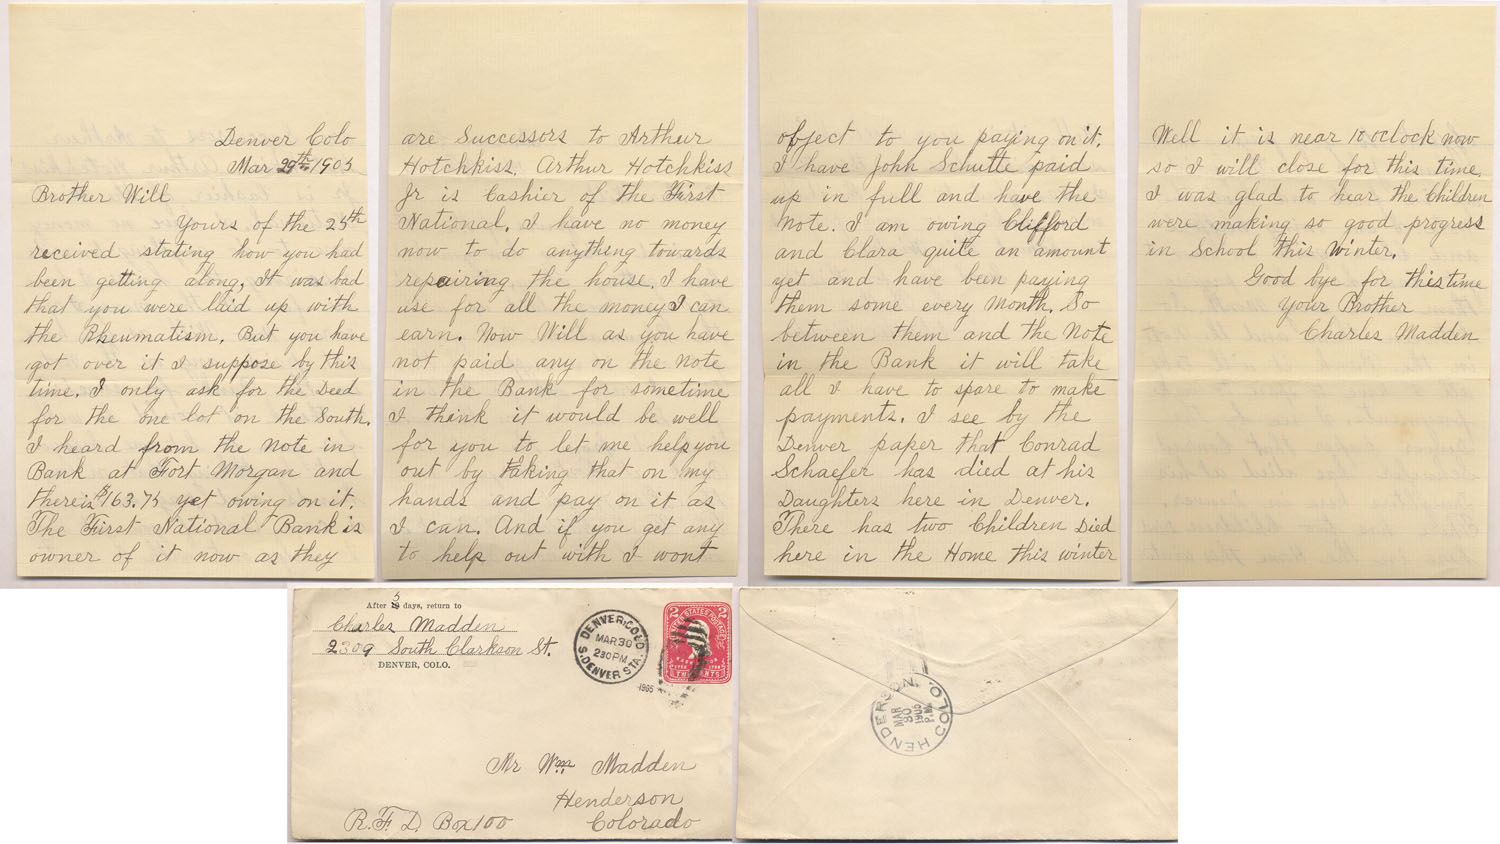 Denver Colo
Mar 29th 1905
Brother Will
Yours of the 25th
received stating how you had
been getting along, It was bad
that you were laid up with
the Rheumatism. But you have
got over it I suppose by this
time. I only ask for the Deed
for the one lot on the South.
I heard from the Note in
Bank at Fort Morgan and
there is $163.75 yet owing on it.
The First National Bank is
owner of it now as they
are Successors to Arthur
Hotchkiss. Arthur Hotchkiss
Jr is Cashier of the First
National. I have no money
now to do anything towards
repairing the house. I have
use for all the money I can
earn. Now Will as you have
not paid any on the Note
in the Bank for sometime
I think it would be well
for you to let me help you
out by taking that on my
hands and pay on it as
I can. And if you get any
to help out with I wont
object to you paying on it.
I have John Schutte paid
up in full and have the
Note. I am owing Clifford
and Clara quite an amount
yet and have been paying
them some every Month. So
between them and the Note
in the Bank it will take
all I have to spare to make
payments. I see by the
Denver paper that Conrad
Schaefer has died at his
Daughters here in Denver.
There has two Children Died
here in the Home this winter
Well it is near 10 oclock now
so I will close for this time.
I was glad to hear the Children
were making so good progress
in School this Winter.
Good bye for this time
Your Brother
Charles Madden
After 5 days, return to
Charles Madden
2309 South Clarkson St.
DENVER, COLO.
DENVER, COLO.
MAR 30
230 PM
S. DENVER STA.
1905
UNITED STATES POSTAGE
2 2
TWO CENTS
Mr Wm Madden
Henderson
Colorado
R.F.D. Box 100
HENDERSON, COLO.
MAR
30
1905
P.M.